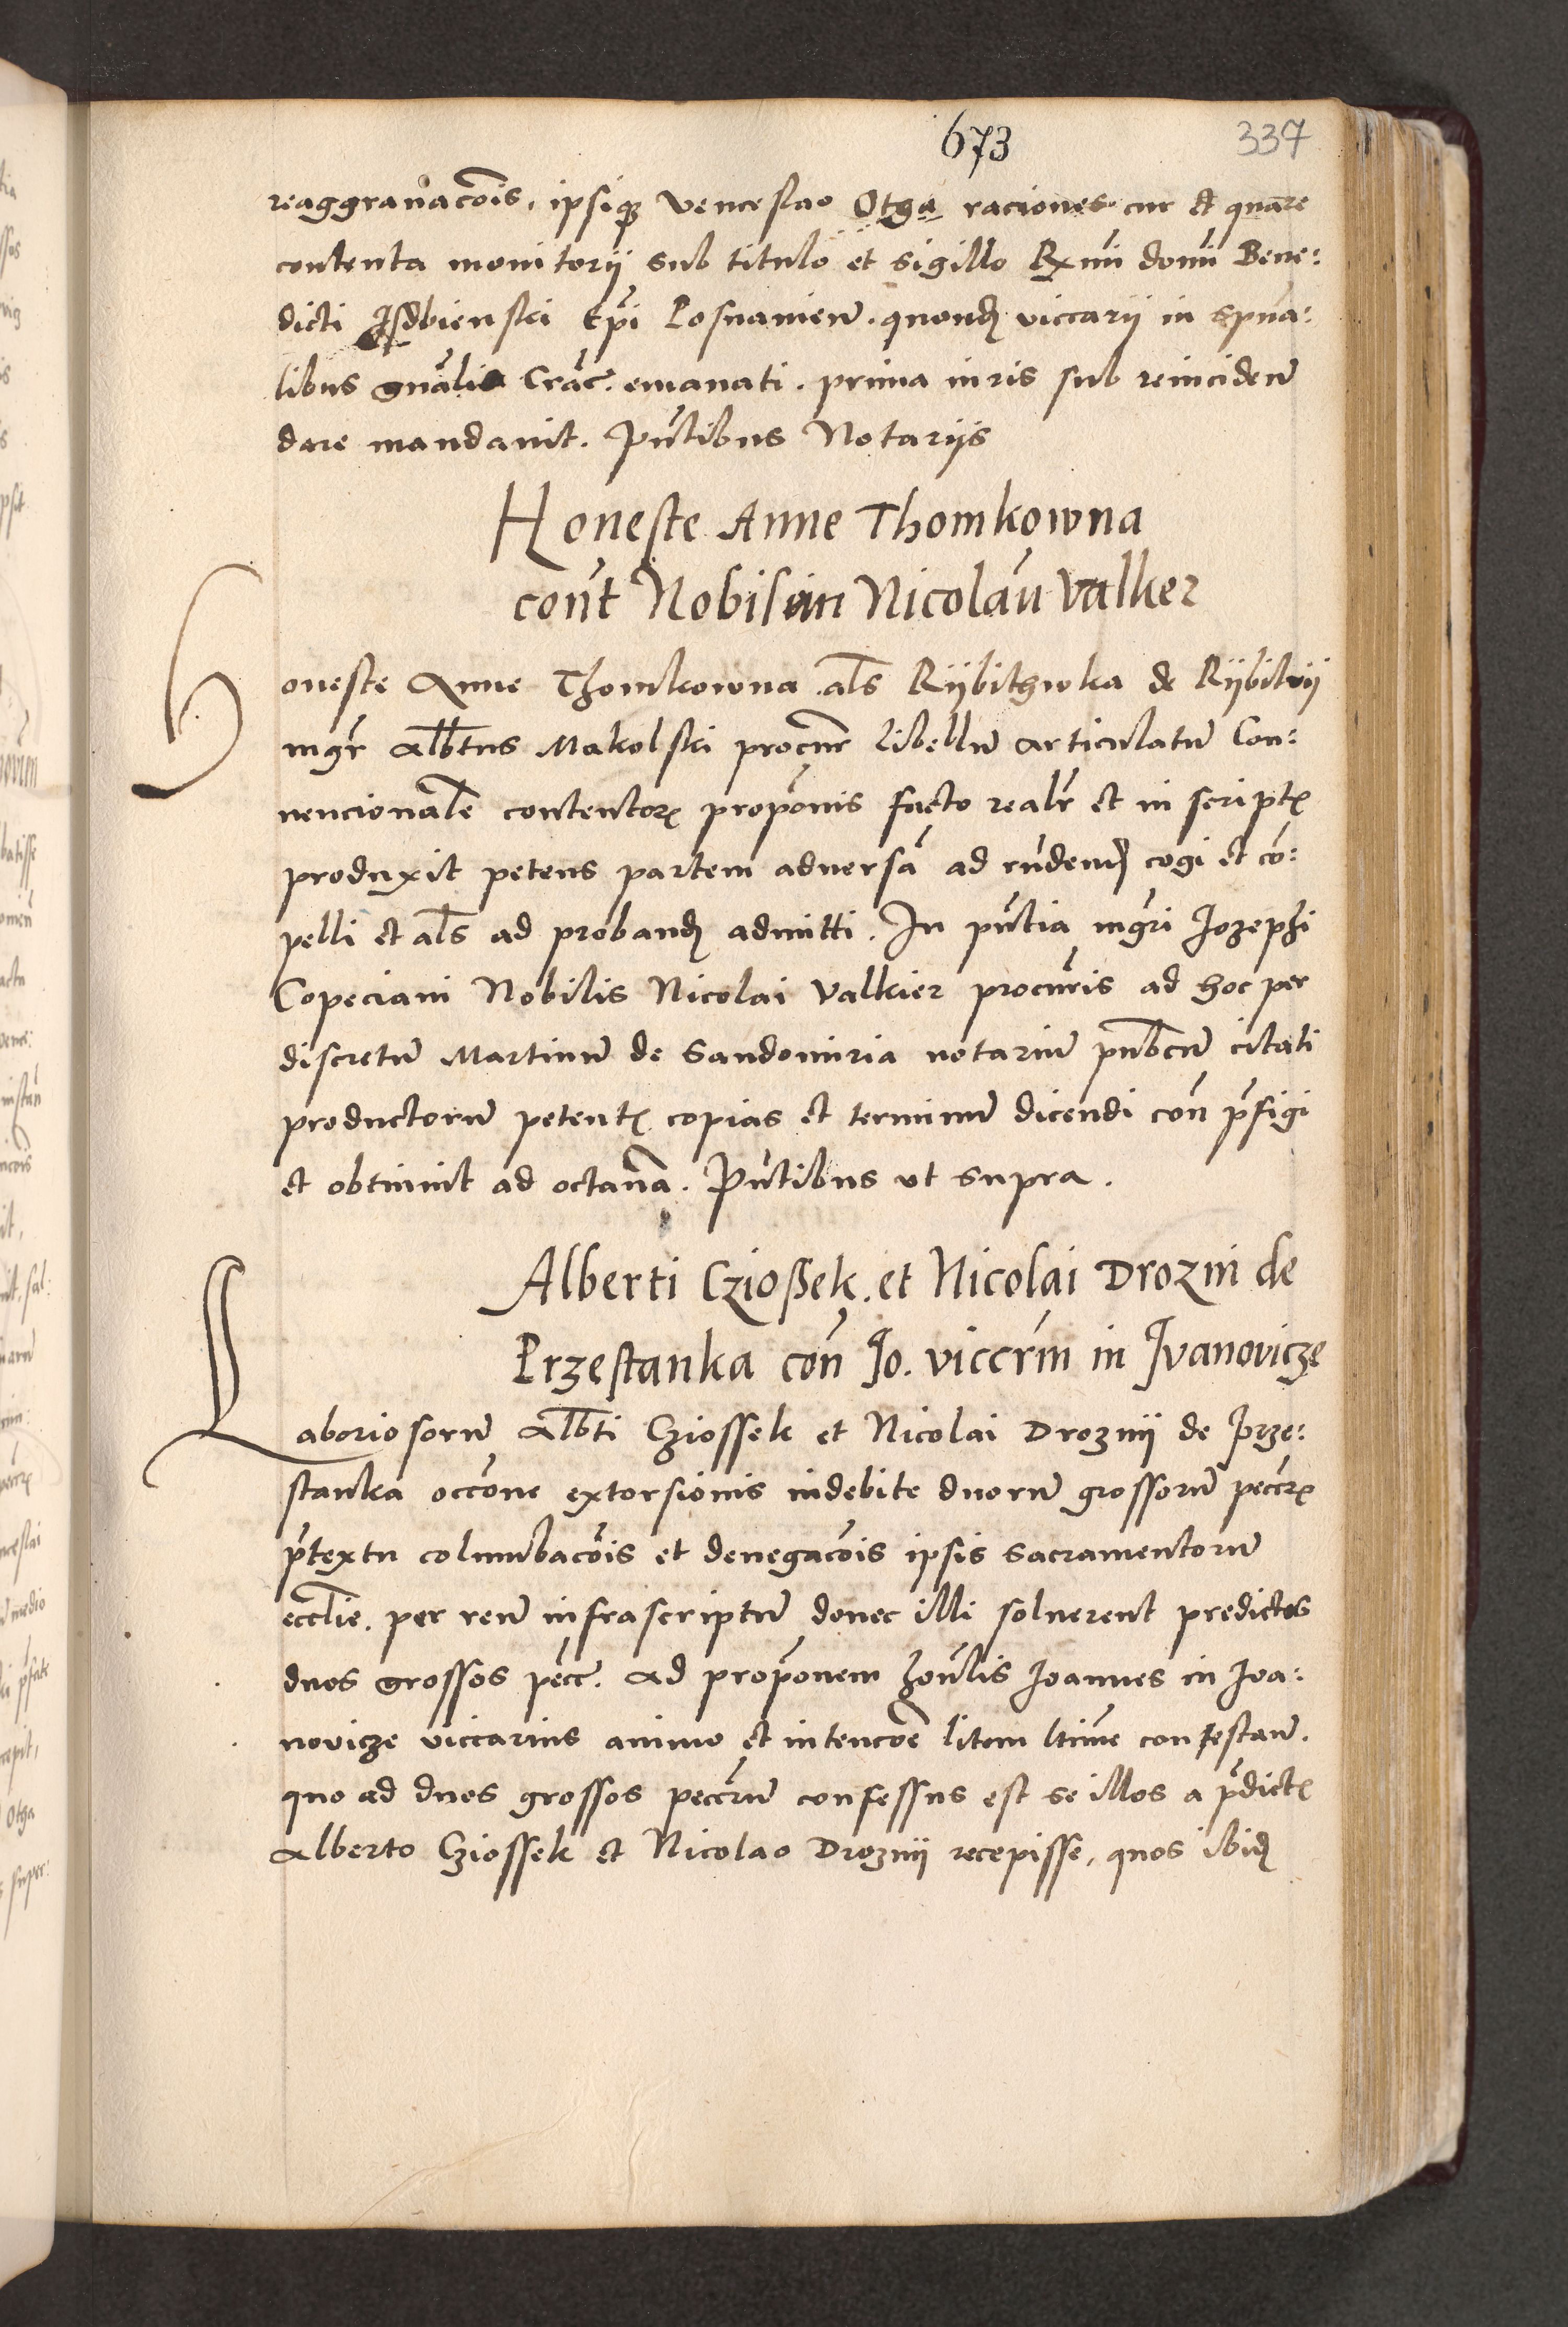 673 337
reaggravacõis, ipsiqꝫ Venceslao Otga raciones cur et quare
contenta monitorii sub titulo et sigillo Rx̃mi domi Bene:
dicti Isdbienski Epĩ Posnanieñ. quondꝫ viccarii in spũa:
libus gnãlis Crãc. emanati. prima iuris sub reincideñ
dare mandavit. Pñtibus Notariis
Honeste Anne Thomkowna
conṫ Nobilem Nicolaũ Valker
Honeste Anne Thomkowna als̃ Rÿbithwka de Rÿbitvÿ
mgr̃ Albtus Makolski procur̃ libellũ articulatũ Con:
vencionalẽ contentorꝫ propõnis facto realr̃ et in scriptꝭ
produxit petens partem adversã ad rñdendꝫ cogi et cõ:
pelli et als̃ ad probandꝫ admitti. In pñtia mgr̃i Jozephi
Copeciani Nobilis Nicolai Valkier procurĩs ad hoc per
discretũ Martinũ de Sandomiria notariũ pub̃cũ citati
productorũ petentꝭ copias et terminũ dicendi coñ pr̃figi
et obtinuit ad octavã. Pñtibus ut supra.
Alberti Czioßek. et Nicolai Drozni de
Przestanka coñ Jo. viccr̃m in Ivanovicze
Laboriosorũ Albti Cziossek et Nicolai Droznij de Prze:
stanka occõne extorsionis indebite duorũ grossorũ peccr̃ꝫ
pr̃textu columbacõis et denegacõis ipsis sacramentorũ
eccl̃ie. per reũ infrascriptũ donec illi solverent predictos
duos grossos pecc. Ad propõnem hoñlis Joannes in Joa:
novicze viccarius animo et intencõe litem ltime contestañ.
quo ad duos grossos peccr̃ũ confessus est se illos a pr̃dictꝭ
Alberto Cziossek et Nicolao Droznij recepisse, quos ibidꝫ